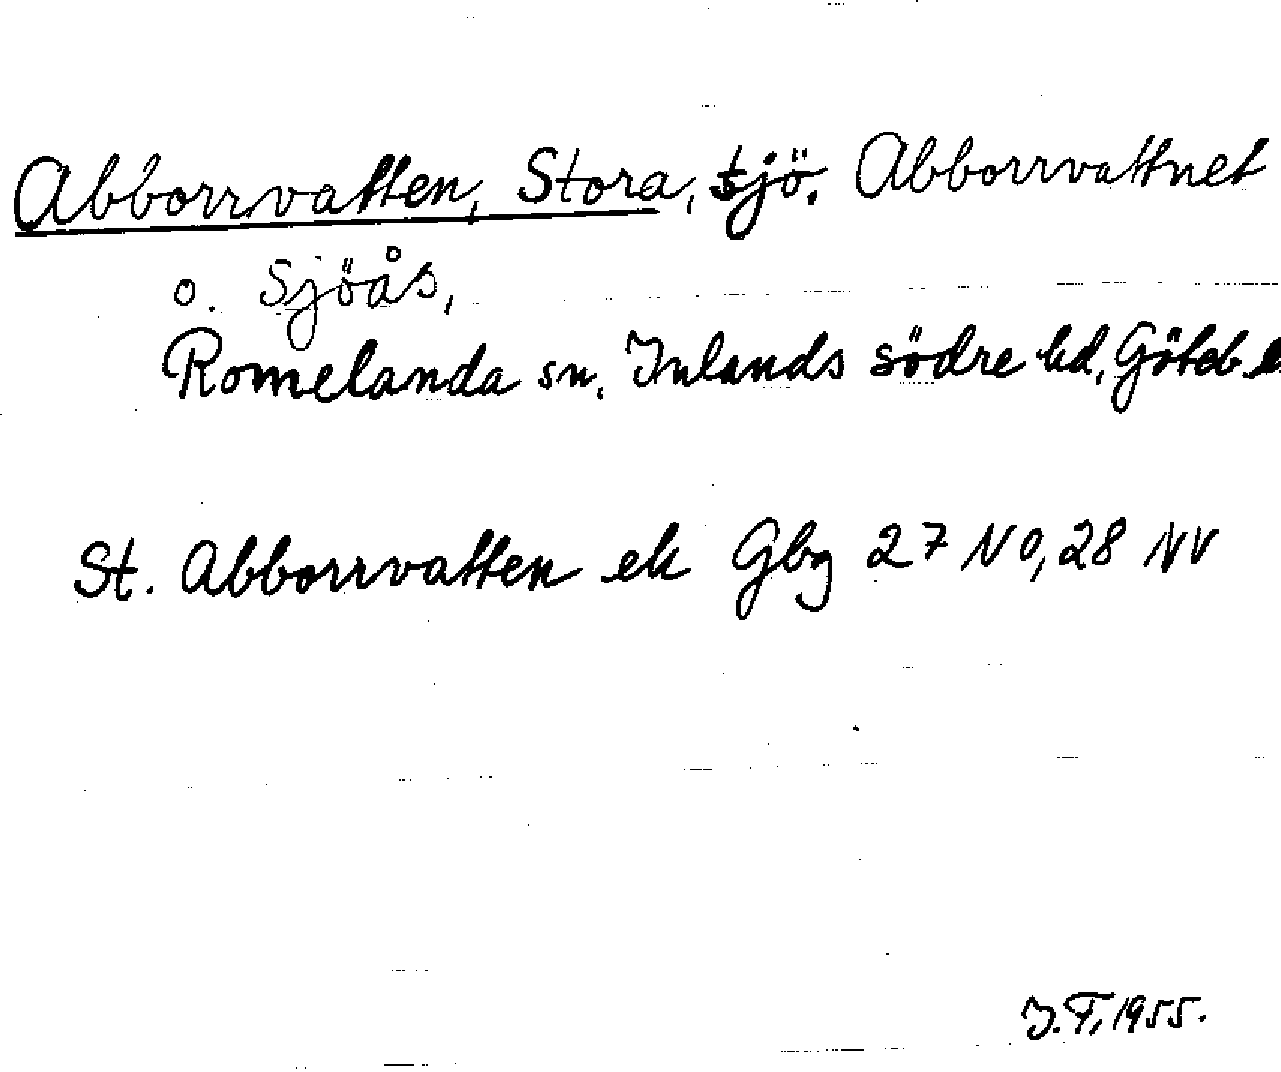 Abborrvatten, Stora, sjö. Abborrvattnet
o. Sjöås,
Romelanda sn, Inlands södre hd, Göteb
St. Abborrvatten ek Gbg 27 NO, 28 NV
J.T, 1955.